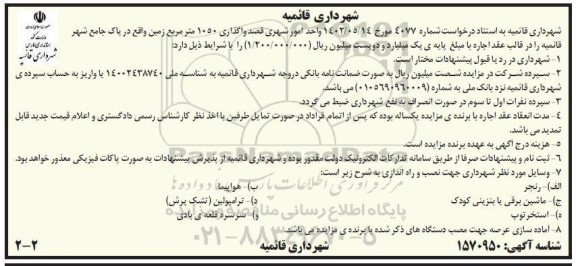 شهرداری قائمیه
شهرداری قائمیه به استناد درخواست شماره ۴۰۷۷ مورخ ۱۴۰۲/۰۵/۱۴ واحد امور شهری قصد واگذاری ۱۰۵۰ متر مربع زمین واقع در پاک جامع شهر
قائمیه را در قالب عقد اجاره با مبلغ پایه ی یک میلیارد و دویست میلیون ریال (۱/۲۰۰/۰۰۰/۰۰۰) را با شرایط ذیل دارد:
۱- شهرداری در رد یا قبول پیشنهادات مختار است.
۲- سپرده شرکت در مزایده شصت میلیون ریال به صورت ضمانت نامه بانکی دروجه شهرداری قائمیه به شناسه ملی ۱۴۰۰۲۴۳۸۷۴۰ یا واریز به حساب سپرده ی
شهرداری قائمیه نزد بانک ملی به شماره (۰۱۰۵۶۹۰۹۶۰۰۰۹) می باشد.
۳- سپرده نفرات اول تا سوم در صورت انصراف به نفع شهرداری ضبط می گردد.
۴- مدت انعقاد عقد اجاره با برنده ی مزایده یکساله بوده که پس از اتمام قراداد در صورت تمایل طرفین با اخذ نظر کارشناس رسمی دادگستری و اعلام قیمت جدید قابل
تمدید می باشد.
۵- هزینه درج آگهی به عهده برنده مزایده است.
۶- ثبت نام و پیشنهادات صرفا از طریق سامانه تدارکات الکترونیک دولت مقدور بوده و شهرداری قائمیه از پذیرش پیشنهادات به صورت پاکات فیزیکی معذور خواهد بود.
۷- وسایل مورد نظر شهرداری جهت نصب و راه اندازی به شرح زیر است:
الف)- رنجر ب)- هواپیما
ج)- ماشین برقی یا بنزینی کودک د)- ترامپولین (تشک پرش)
ه)- استخرتوپ و)- سرسره قلعه ی بادی
۸- آماده سازی عرصه جهت نصب دستگاه های ذکر شده با برنده ی مزایده می باشد.
شناسه آگهی: ۱۵۷۰۹۵۰ شهرداری قائمیه ۲-۲
شهرداری قائمیه
پایگاه اطلاع رسانی مناقصه و مزایده
۰۲۱-۸۸۳۴۹۶۷۰-۵